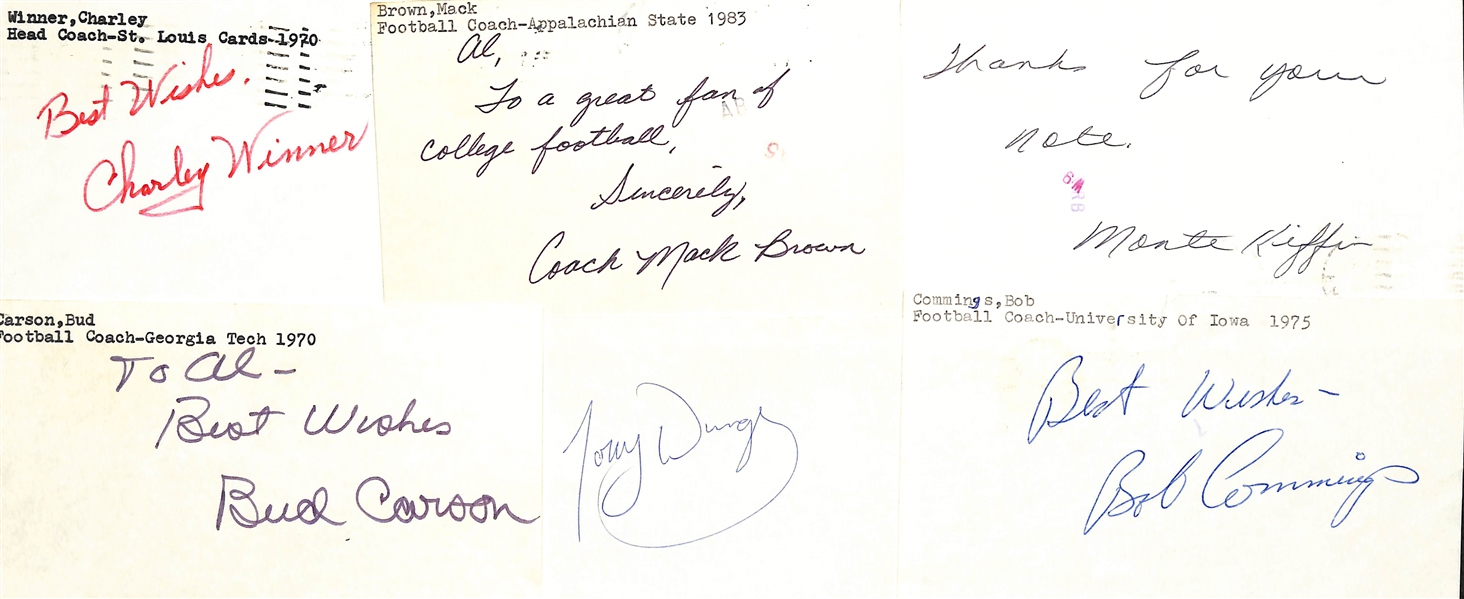 Winner,Charley
Head Coach-St. Louis Cards-1970
Best Wishes.
Charley Winner
Brown,Mack
Football Coach-Appalachian State 1983
Al,
To a great fan of
college football,
Sincerely,
Coach Mack Brown
Thanks for your
note.
Monte Kiffin
Carson,Bud
Football Coach-Georgia Tech 1970
To Al-
Best Wishes
Bud Carson
Tony Dungy
Commings,Bob
Football Coach-University Of Iowa 1975
Best Wishes-
Bob Commings